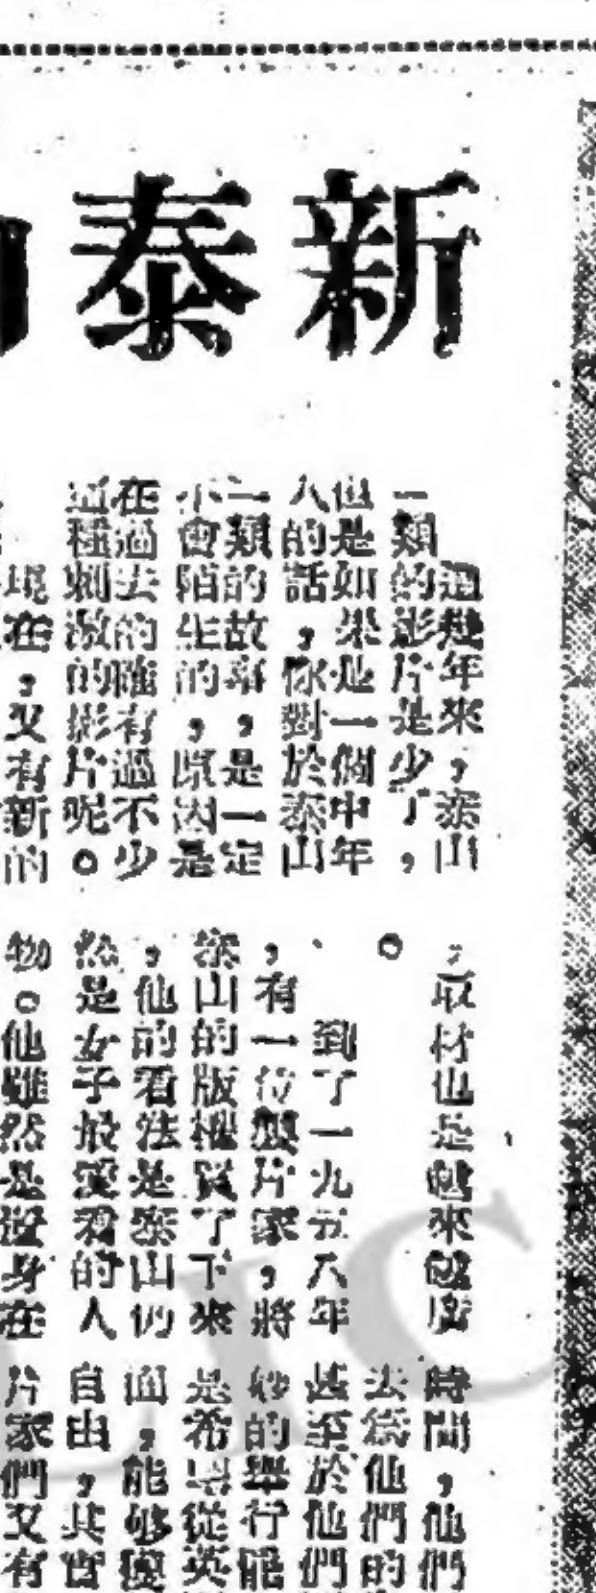 新泰
這幾年來，泰山
一類的影片是少了，
但是如果是一個中年
人的話，你對於泰山
一類的故事，是一定
不會陌生的，原因是
在過去的確有過不少
這種刺激的影片呢。
現在，又有新的
，取材也是越來越廣
。
到了一九五八年
，有一位製片家，將
泰山的版權買了下來
，他的看法是泰山仍
然是女子最愛看的人
物。他雖然是設身在
時間，他們
去為他們的
甚至於他們
妙的舉行能
是希望從英
面，能够獲
自由，其實
片家們又有
LIC